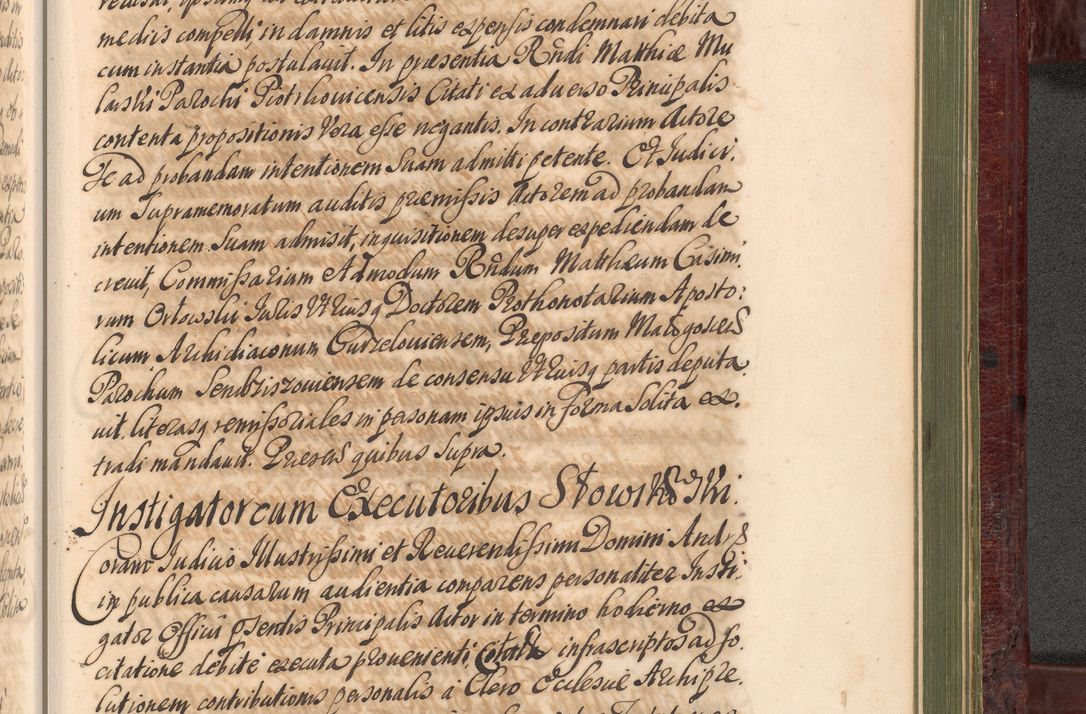 mediis compelli, in damnis et litis expensis condemnari debita
cum instantia postulauit. In præsentia Rndi Matthiæ Mu
larski Parochi Piotrkouicensis Citati ex aduerso Principalis
contenta propositionis Vera esse negantis. In contrarium Actore
se ad probandam intentionem suam admitti petente. Et Iudici:
um supramemoratum auditis præmissis Actorem ad probandam
intentionem suam admisit, inquisitionem desuper expediendam de
creuit, Commissarium Admodum Rndum Matthæum Casimi:
rum Orłowski Iuris Vtriusq Doctorem Prothonotarium Aposto:
licum Archidiaconum Curzelouiensem, Præpositum
Parochum Sendziszouiensem de consensu Vtriusq partis deputa
uit. literasq remissoriales in personam ipsius in forma solita ex:
tradi mandauit. Præsen quibus supra.
Instigatorem cum Executoribus
Coram Iudicio Illustrissimi et Reuerendissimi Domini
in publica causarum audientia comparens personaliter Insti:
gator Officii psentis Principalis Actor in termino hodierno ex
citatione debite executa proueniente, infrascriptos ad so:
lutionem contributionis personalis a Clero Ecclesiæ Archipre: